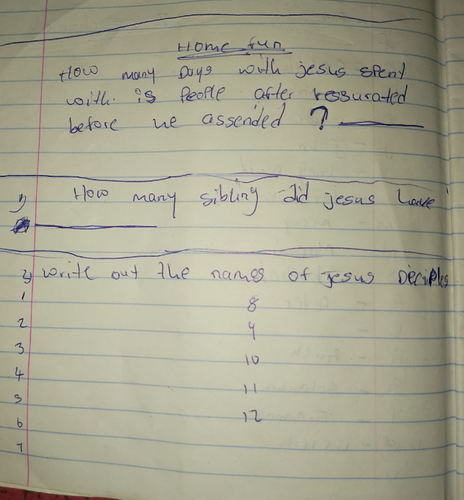 Home fun
How many Days with jesus spent
with is People after ressurated
before he assended ?
How many sibling did jesus have
write out the names of jesus Deciples
1 8
2 9
3 10
4 11
5 12
6
7